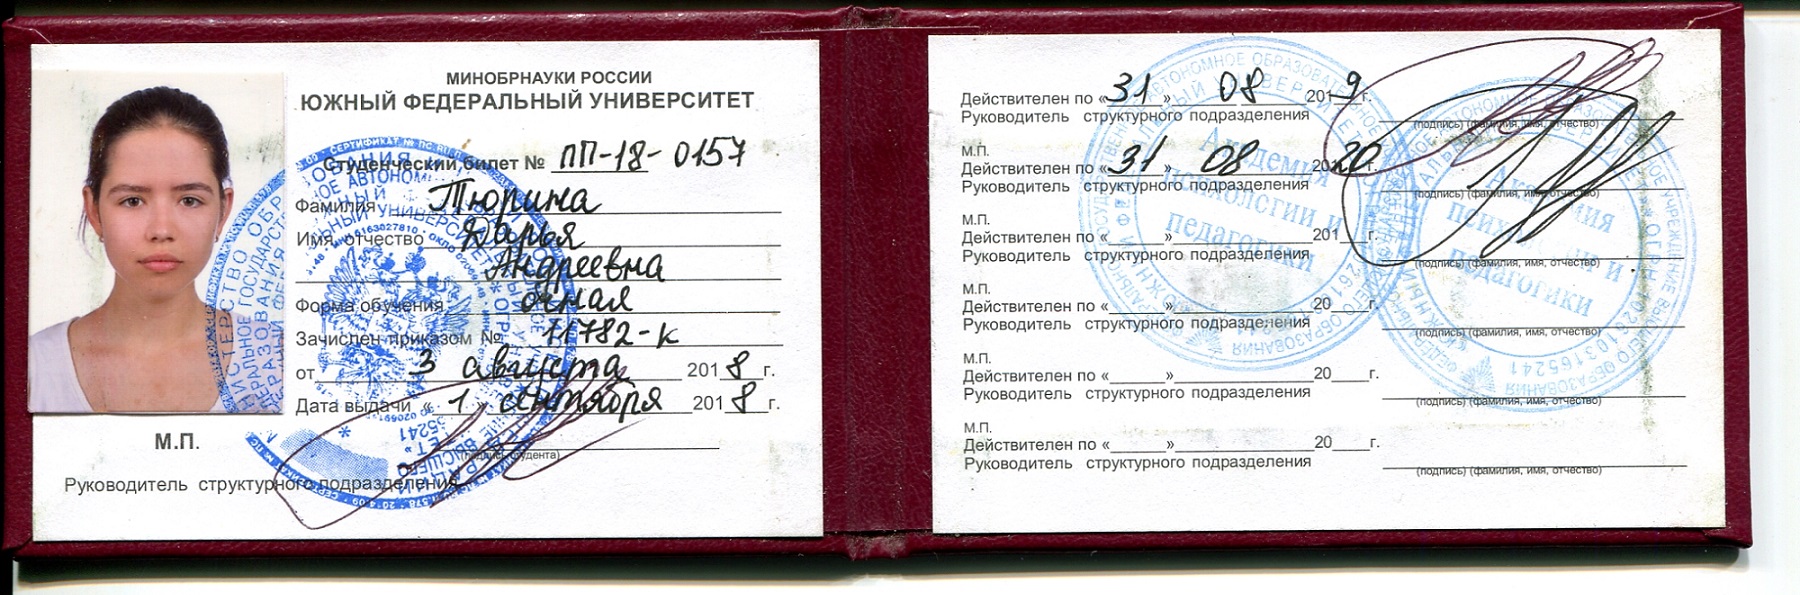 МИНОБРНАУКИ РОССИИ
ЮЖНЫЙ ФЕДЕРАЛЬНЫЙ УНИВЕРСИТЕТ
Студенческий билет № ПП-18-0157
Фамилия Тюрина
Имя, отчество Дарья
Андреевна
Форма обучения очная
Зачислен приказом № 11782-к
от 3 августа 2018 г.
Дата выдачи «1» сентября 2018 г.
(подпись студента)
М.П.
Руководитель структурного подразделения
Действителен по «31» 08 2019 г.
Руководитель структурного подразделения
(подпись) (фамилия, имя, отчество)
М.П.
Действителен по «31» 08 2020 г.
Руководитель структурного подразделения
(подпись) (фамилия, имя, отчество)
М.П.
Действителен по «______»______________201____г.
Руководитель структурного подразделения
(подпись) (фамилия, имя, отчество)
М.П.
Действителен по «______»______________20____г.
Руководитель структурного подразделения
(подпись) (фамилия, имя, отчество)
М.П.
Действителен по «______»______________20____г.
Руководитель структурного подразделения
(подпись) (фамилия, имя, отчество)
М.П.
Действителен по «______»______________20____г.
Руководитель структурного подразделения
(подпись) (фамилия, имя, отчество)
Академия
психологии и
педагогики
Академия
психологии и
педагогики